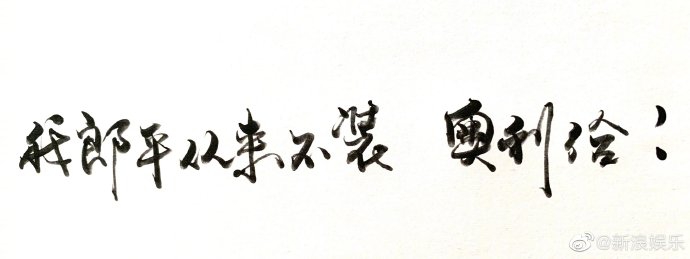 我郎平从来不装 奥利给！
@新浪娱乐